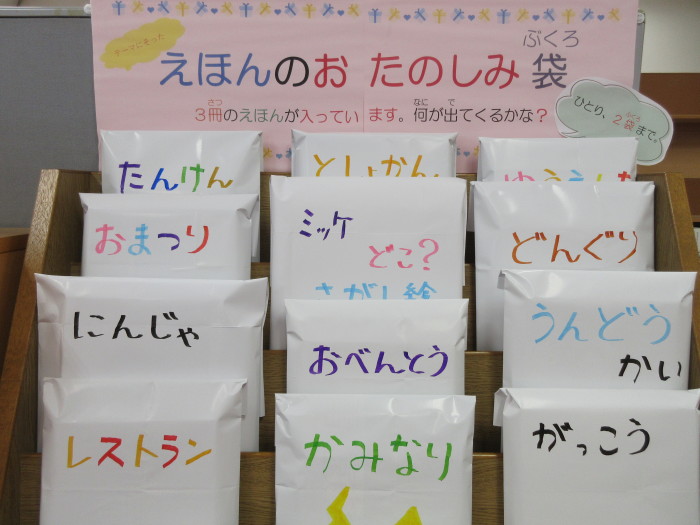 テーマにそった
えほんのお たのしみ袋
ぶくろ
3冊のえほんが入ってい ます。何が出てくるかな？
さつ
なに
で
ひとり、2袋まで。
たんけん
としょかん
おまつり
ミッケ
どこ?
さがし絵
どんぐり
にんじゃ
おべんとう
うんどう
かい
レストラン
かみなり
がっこう